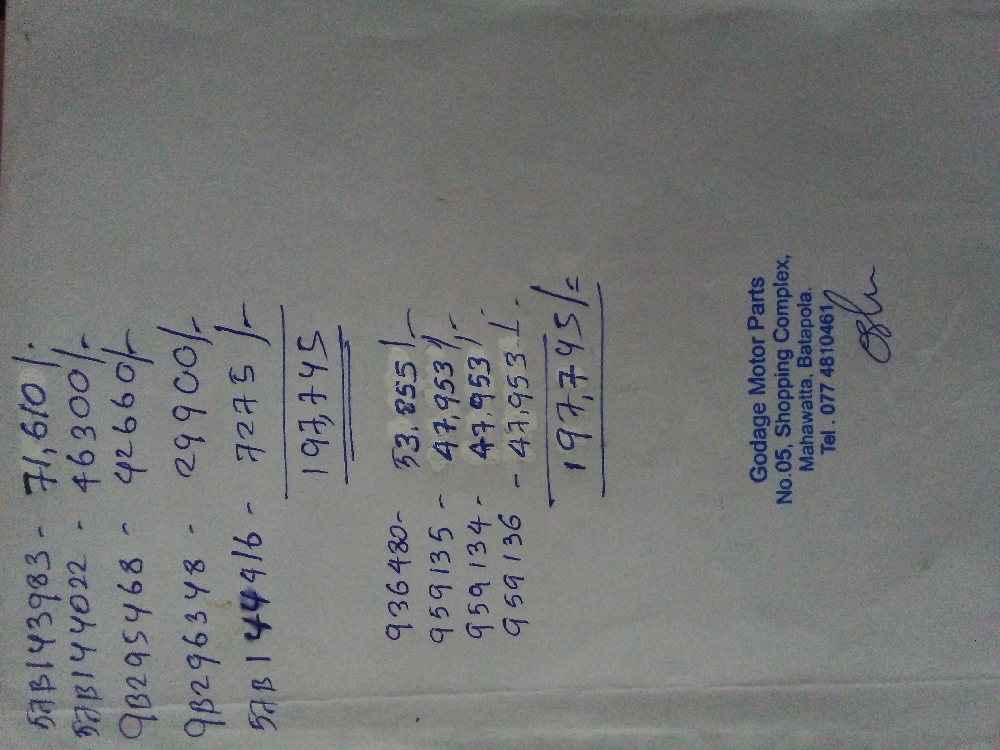 5AB143983 - 71,610/-
5AB144022 - 46300/-
9B295468 - 42660/-
9B296348 - 29900/-
5AB144416 - 7275/-
197,745
936480 - 53,855/-
959135 - 47,953/-
959134 - 47,953/-
959136 - 47,953/-
197,745/=
Godage Motor Parts
No.05, Shopping Complex,
Mahawatta, Batapola.
Tel . 077 4810461